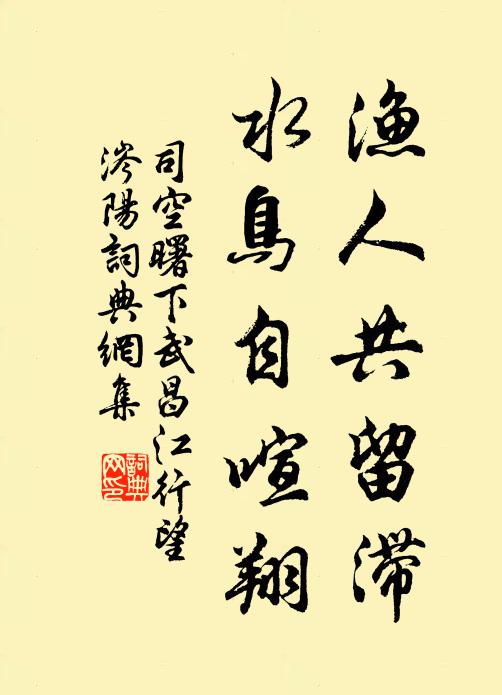 漁人共留滯
水鳥自喧翔
司空曙下武昌江行望
涔陽詞典網集
詞典
网印